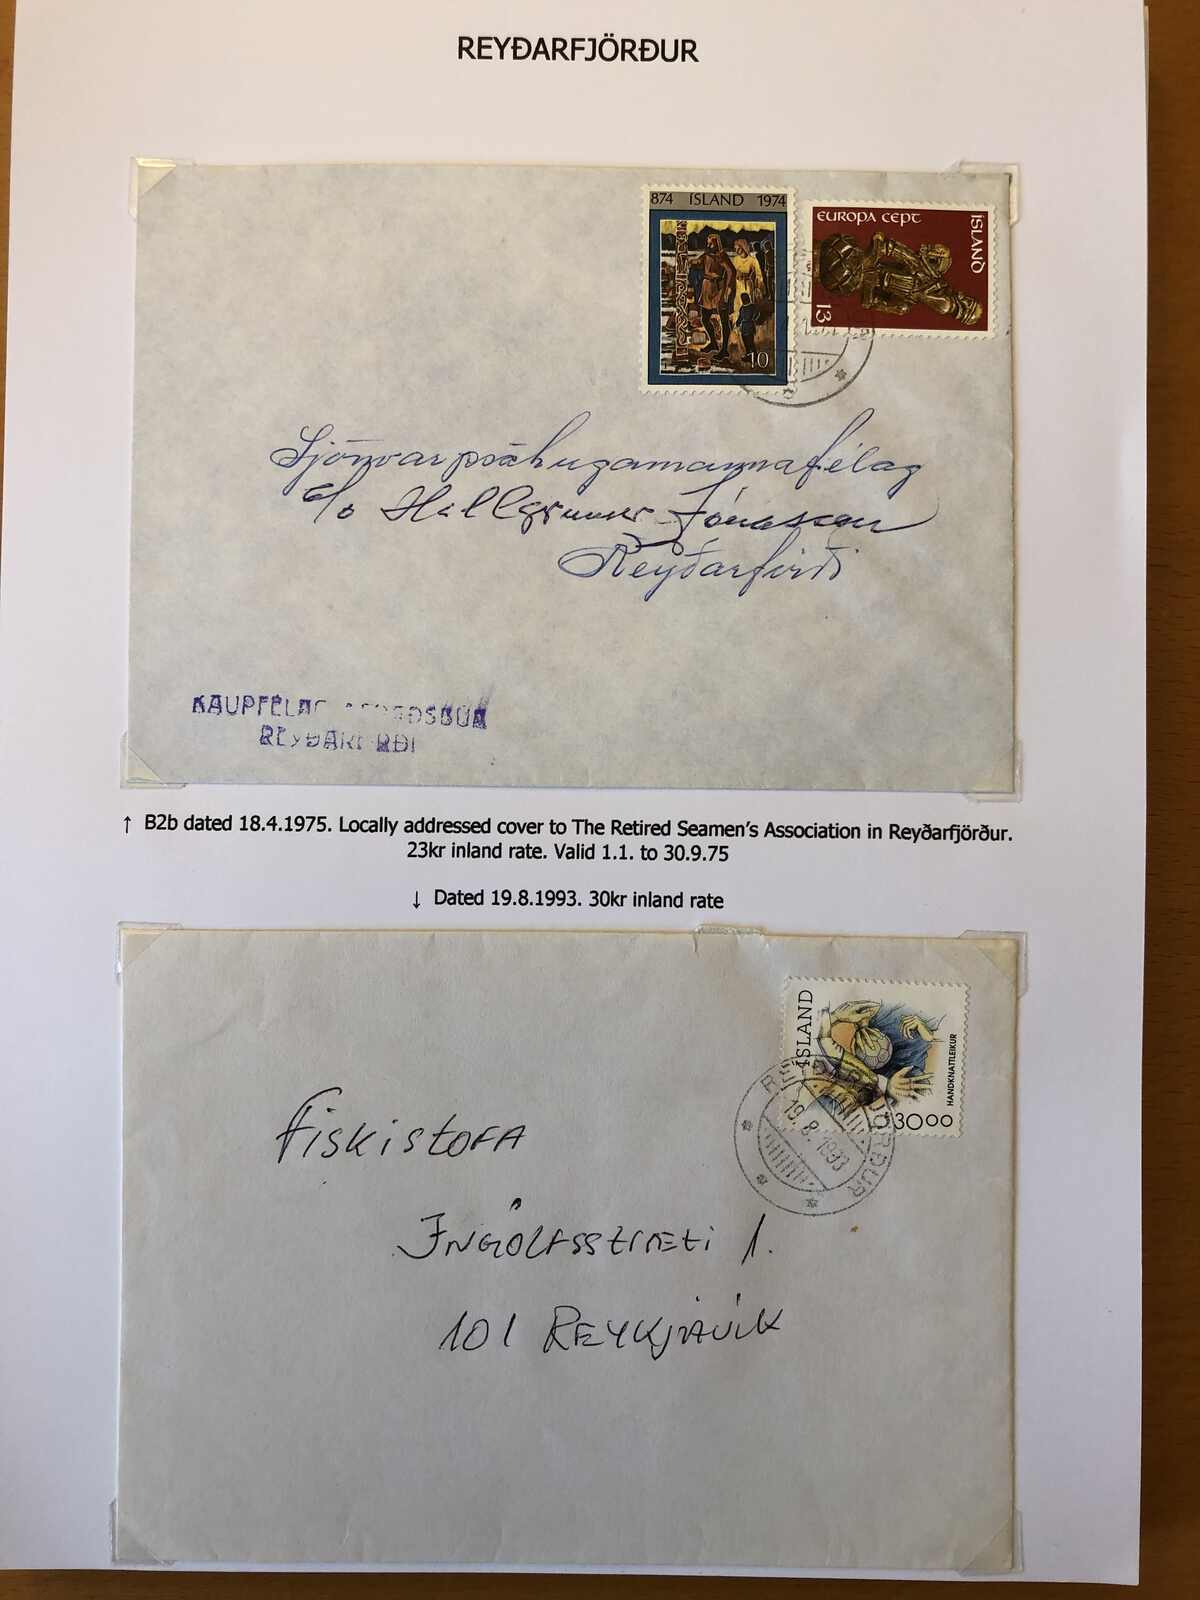 REYÐARFJÖRÐUR
874 ÍSLAND 1974
10
EUROPA CEPT
ÍSLAND
13
Sjónvarpsáhugamannafélag
c/o Hallgrímur Jónasson
Reyðarfirði
KAUPFÉLAG
REYÐARFIRÐI
↑ B2b dated 18.4.1975. Locally addressed cover to The Retired Seamen's Association in Reyðarfjörður.
23kr inland rate. Valid 1.1. to 30.9.75
↓ Dated 19.8.1993. 30kr inland rate
ÍSLAND
HANDKNATTLEIKUR
3000
REYÐARFJÖRÐUR
19.8.1993
Fiskistofa
Ingólfsstræti 1.
101 Reykjavík